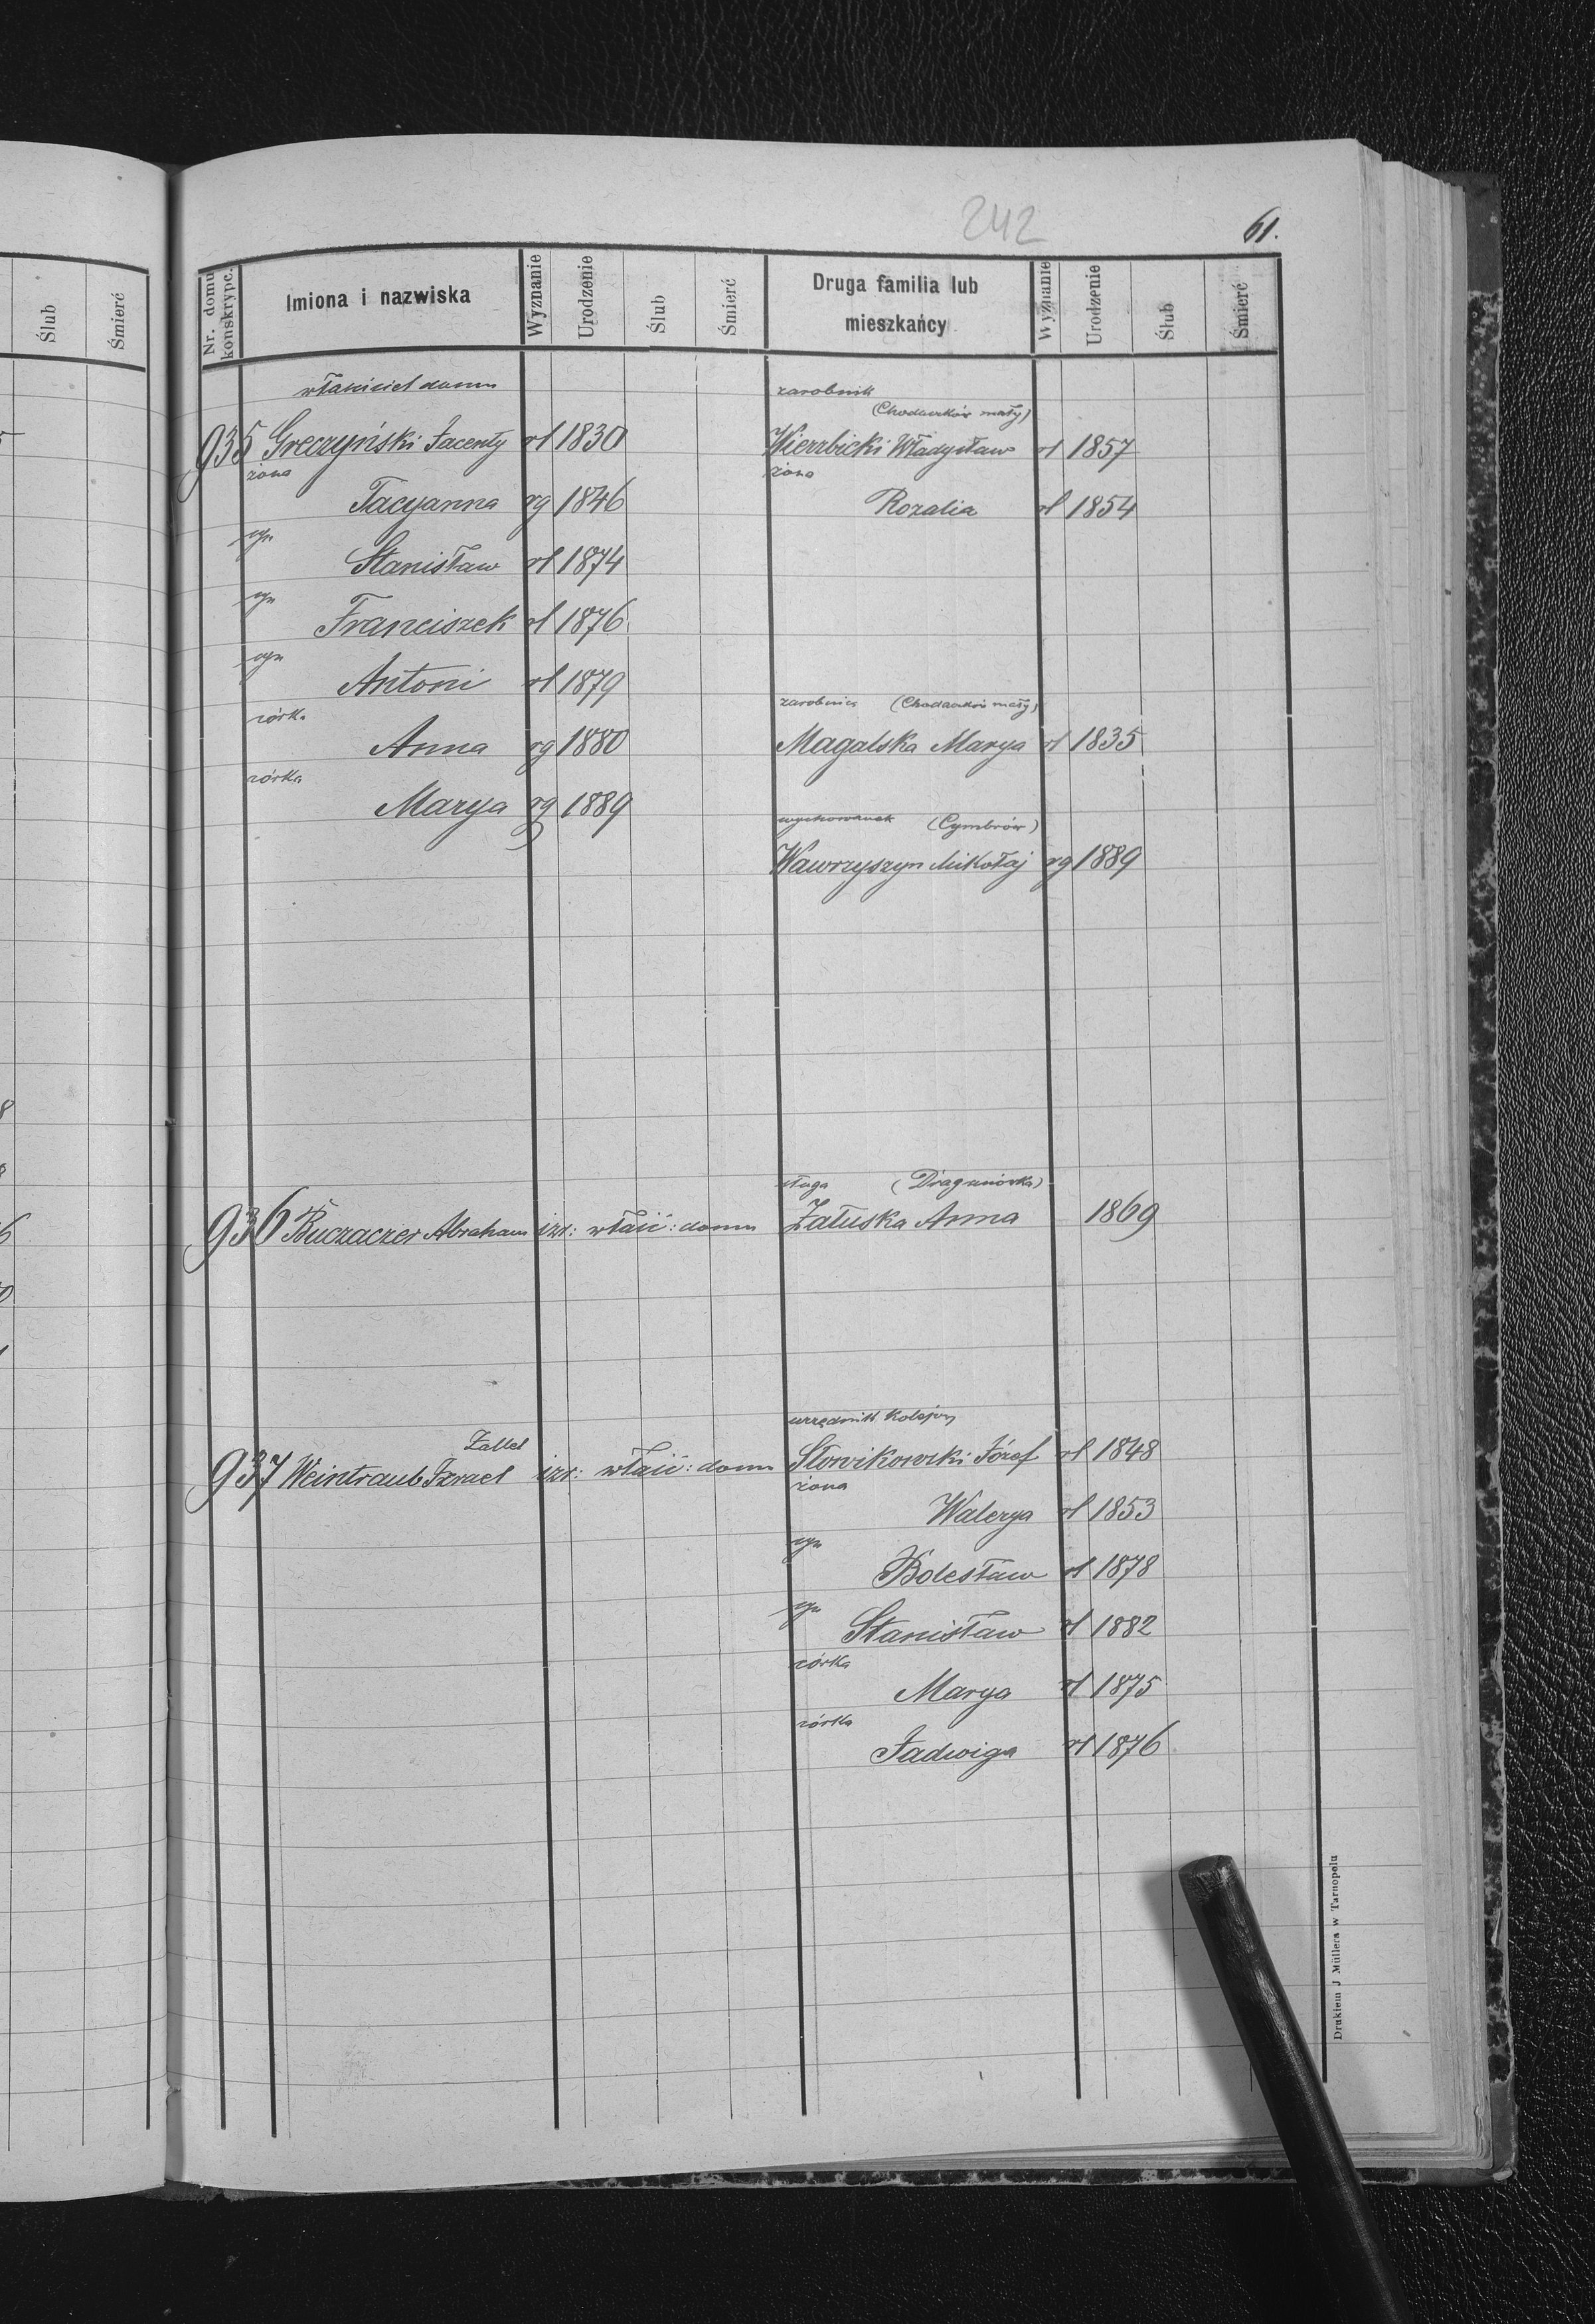 242
61.
Ślub Śmierć
Nr. domu konskrypc. Imiona i nazwiska Wyznanie Urodzenie Ślub Śmierć Druga familia lub mieszkańcy Wyznanie Urodzenie Ślub Śmierć
właściciel domu
935 Greczyński Jacenty rł 1830
żona
Tacyanna rg 1846
syn
Stanisław rł 1874
syn
Franciszek rł 1876
syn
Antoni rł 1879
córka
Anna rg 1880
córka
Marya rg 1889
zarobnik
(Chodaczków mały)
Wierzbicki Władysław rł 1857
żona
Rozalia rł 1854
zarobnica (Chodaczków mały)
Magalska Marya rł 1835
wychowanek (Cymbrów)
Wawrzyszyn Mikołaj rg 1889
936 Buczaczer Abraham izr: właść: domu
sługa (Draganówka)
Załuska Anna 1869
Zallel
937 Weintraub Izrael izr: właść: domu
urzędnik kolejowy
Słowikowski Józef rł 1848
żona
Walerya rł 1853
syn
Bolesław rł 1878
syn
Stanisław rł 1882
córka
Marya rł 1875
córka
Jadwiga rł 1876
Drukiem J Müllera w Tarnopolu